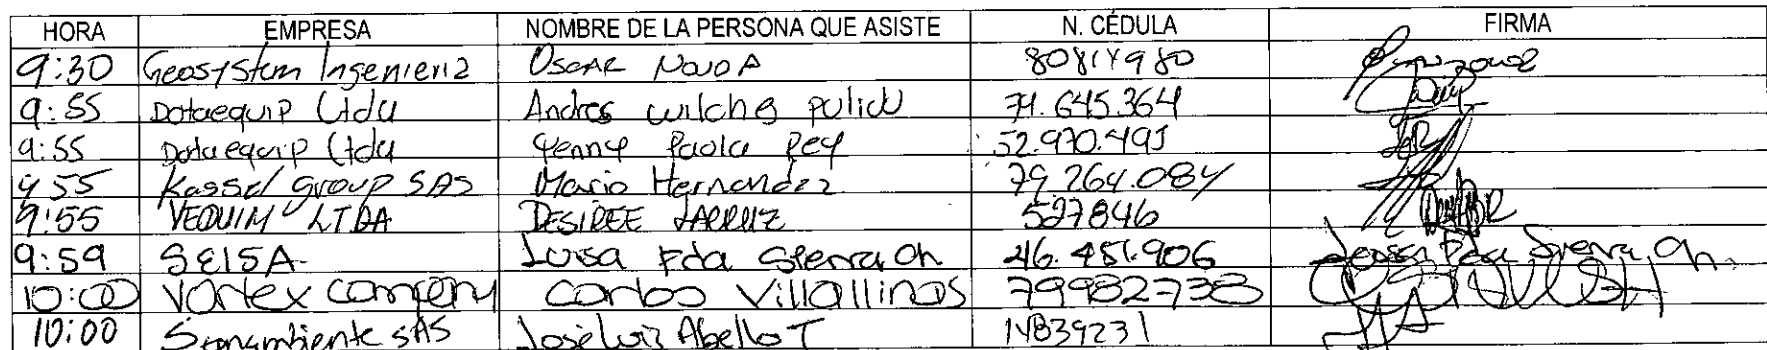 HORA EMPRESA NOMBRE DE LA PERSONA QUE ASISTE N. CÉDULA FIRMA
9:30 Geosystem Ingenieria OSCAR NOVOA 80814980
9:55 Dataequip Ltda Andres wilches pulido 71.645.364
9:55 Dataequip Ltda Yenny Paola Rey 52.970.491
9 55 Kassel group SAS Mario Hernandez 79.264.084
9:55 VEQUIM LTDA DESIREE 527846
9:59 SEISA Luisa Fda Sierra Ch 46.451.906 Luisa Fda Sierra Ch.
10:00 Vortex company Carlos Villallinas 79982738
10:00 SAS José Luis Abello T 14839231